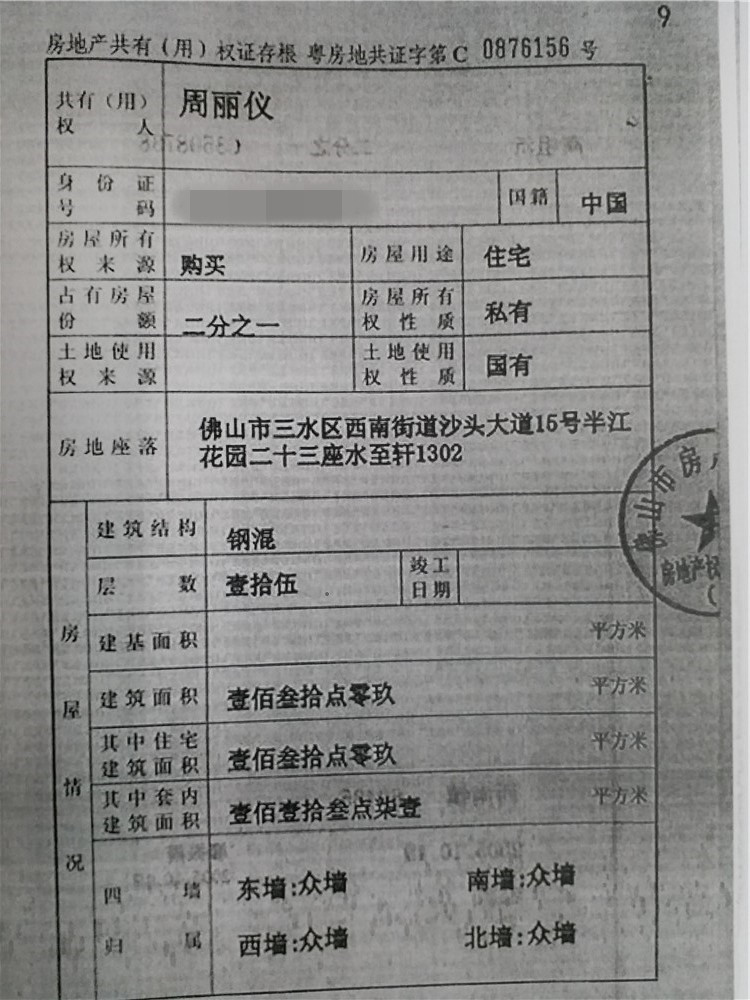 9
房地产共有(用)权证存根 粤房地共证字第C 0876156 号
共有(用)
权 人
周丽仪
身份证
号 码
国籍
中国
房屋所有
权来源
购买
房屋用途
住宅
占有房屋
份 额
二分之一
房屋所有
权性质
私有
土地使用
权来源
土地使用
权性质
国有
房地座落
佛山市三水区西南街道沙头大道15号半江
花园二十三座水至轩1302
房屋情况
建筑结构
钢混
层 数
壹拾伍
竣工
日期
建基面积
平方米
建筑面积
壹佰叁拾点零玖
平方米
其中住宅
建筑面积
壹佰叁拾点零玖
平方米
其中套内
建筑面积
壹佰壹拾叁点柒壹
平方米
四 墙
归 属
东墙:众墙
南墙:众墙
西墙:众墙
北墙:众墙
山市房
房地产权